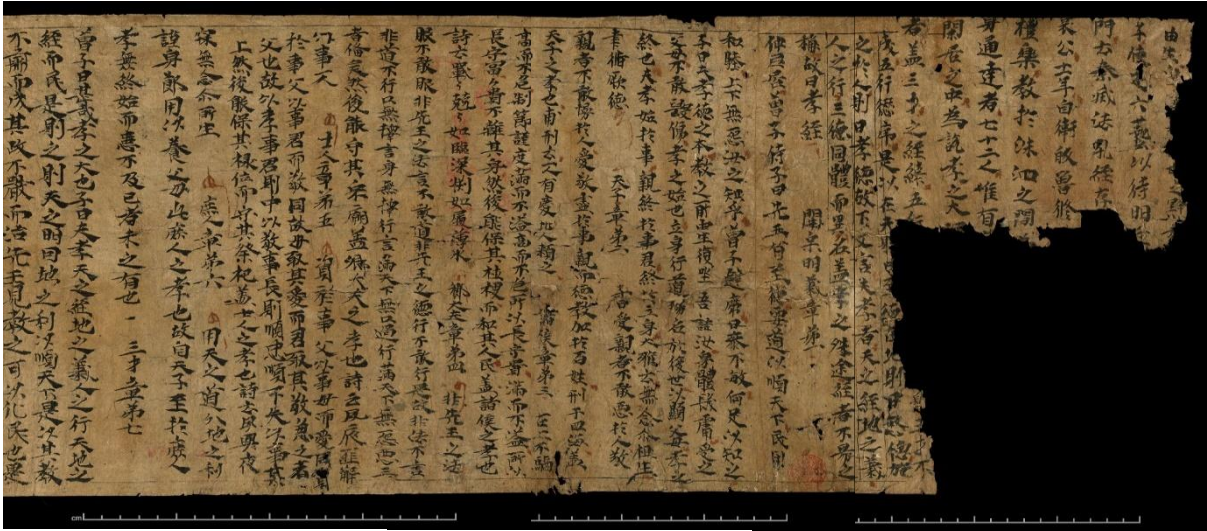 六藝以待明
哀公十一年自衛返魯修
禮樂教於洙泗之間
身通達者七十二人惟有
閑居之中為說孝之大
者盖三才之經緯五行
之於人則曰孝德故下文言夫孝者天之經地之義
人之行三德同體而異名盖孝之殊途經者不易之
稱故曰孝經 開宗明義章第一
仲尼居曾子侍子曰先王有至德要道以順天下民用
和睦上下無怨汝知乎曾子避席曰參不敏何足以知之
子曰夫孝德之本教之所由生復坐吾語汝身體髮膚受之
父母不敢毀傷孝之始也立身行道揚名於後世以顯父母孝之
終也夫孝始於事親終於事君終於立身大雅云無念尒祖聿
脩厥德 天子章第二 子曰愛親者不敢惡於人敬
親者不敢慢於人愛敬盡於事親而德教加於百姓刑于四海盖
天子之孝也甫刑云一人有慶兆人賴之 諸侯章第三 在上不驕
高而不危制節謹度滿而不溢高而不危所以長守貴滿而不溢所以
長守富富貴不離其身然後能保其社稷而和其人民盖諸侯之孝也
詩云戰々兢々如臨深淵如履薄氷 卿大夫章第四 非先王之法
服不敢服非先王之法言不敢道非先王之德行不敢行是故非法不言
非道不行口無擇言身無擇行言滿天下無口過行滿天下無怨惡三
者備矣然後能守其宗廟盖卿大夫之孝也詩云夙夜匪懈
以事一人 士人章第五 資於事父以事母而愛同資
於事父以事君而敬同故母取其愛而君取其敬兼之者
父也故以孝事君則忠以敬事長則順忠順不失以事其
上然後能保其祿位而守其祭祀盖士人之孝也詩云夙興夜
寐無忝尒所生 庶人章第六 用天之道分地之利
謹身節用以養父母此庶人之孝也故自天子至於庶人
孝無終始而患不及己者未之有也 三才章第七
曾子曰甚哉孝之大也子曰夫孝天之經地之義人之行天地之
經而民是則之則天之明因地之利以順天下是以其教
不肅而成其政不嚴而治先王見教之可以化民也是
cm